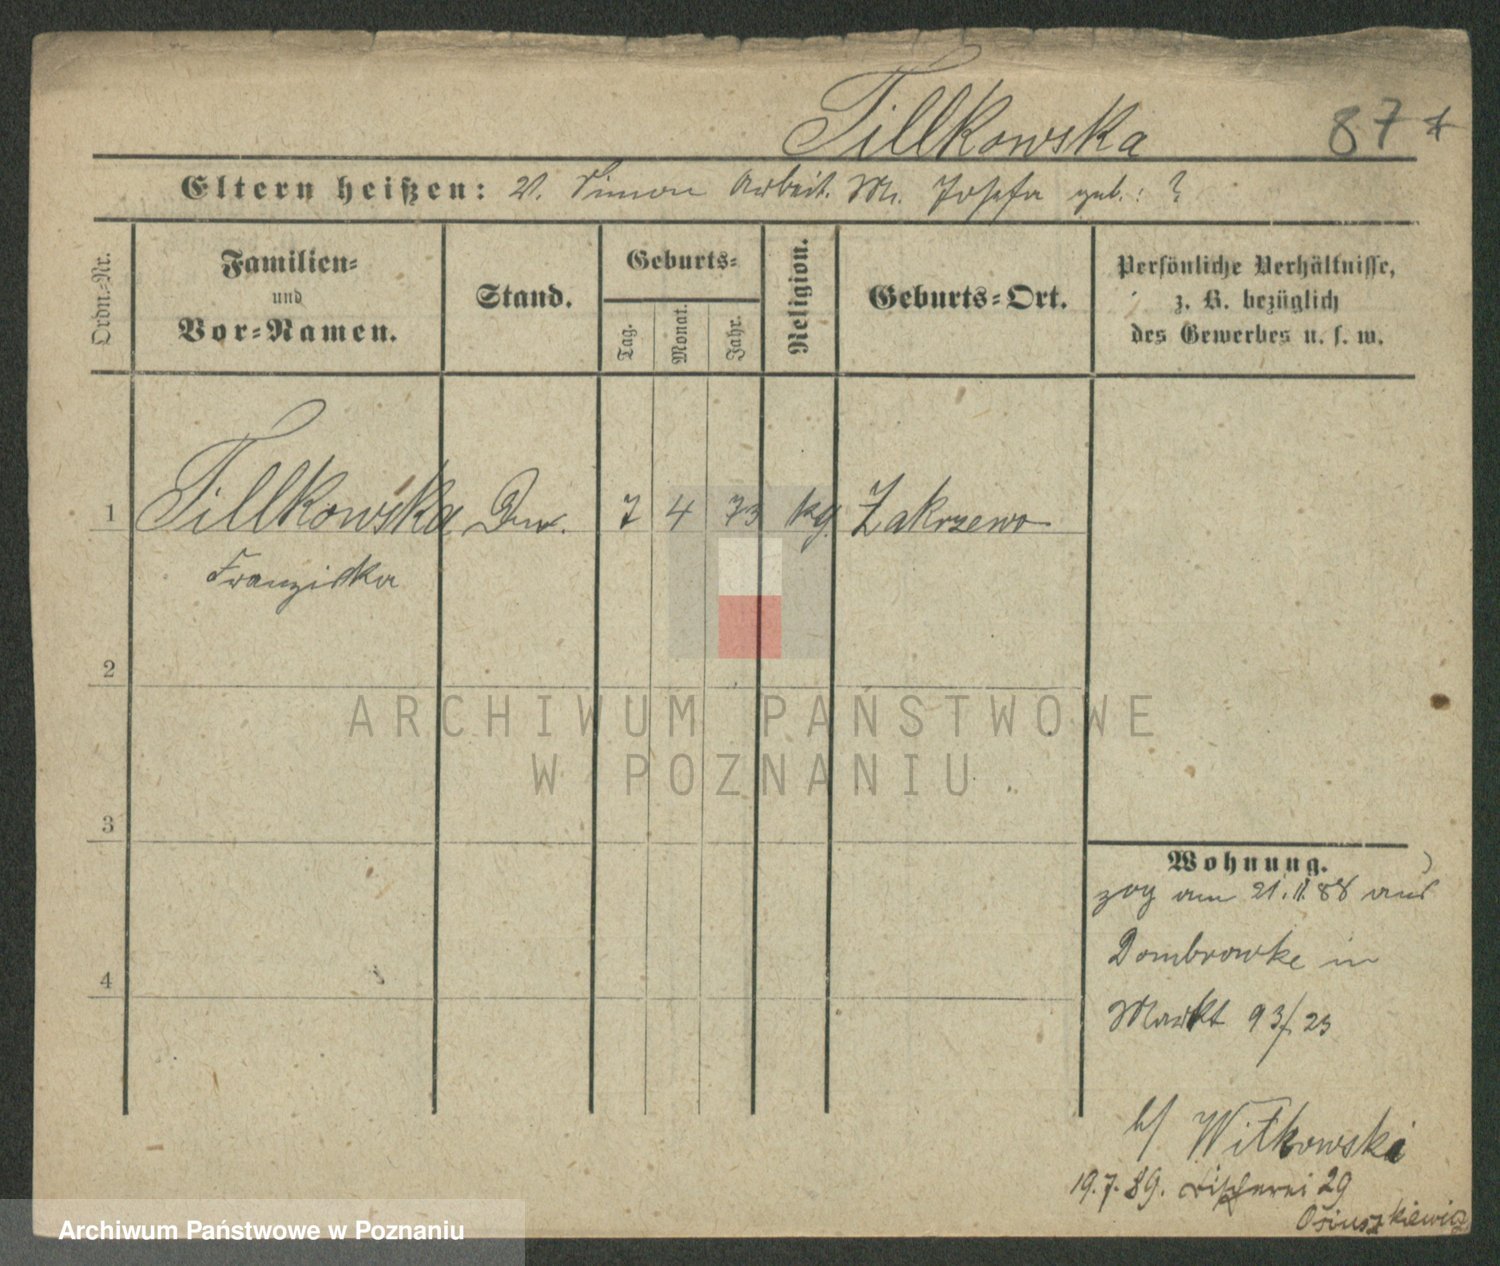 Tillkowska 87 *
Eltern heißen: V. Simon Arbeit. M. Josefa geb.: ?
Ordn.-Nr.
Familien-
und
Vor-Namen.
Stand.
Geburts-
Tag.
Monat.
Jahr.
Religion.
Geburts-Ort.
Persönliche Verhältnisse,
z. B. bezüglich
des Gewerbes u. s. w.
1 Tillkowska 7 4 73 kg. Zakrzewo
Franziska
2
ARCHIWUM PAŃSTWOWE
W POZNANIU
3
4
Wohnung.
zog am 21.11.88 aus
Dombrowke in
Markt 93/23
b/ Witkowski
19.7.89. Fischerei 29
Archiwum Państwowe w Poznaniu